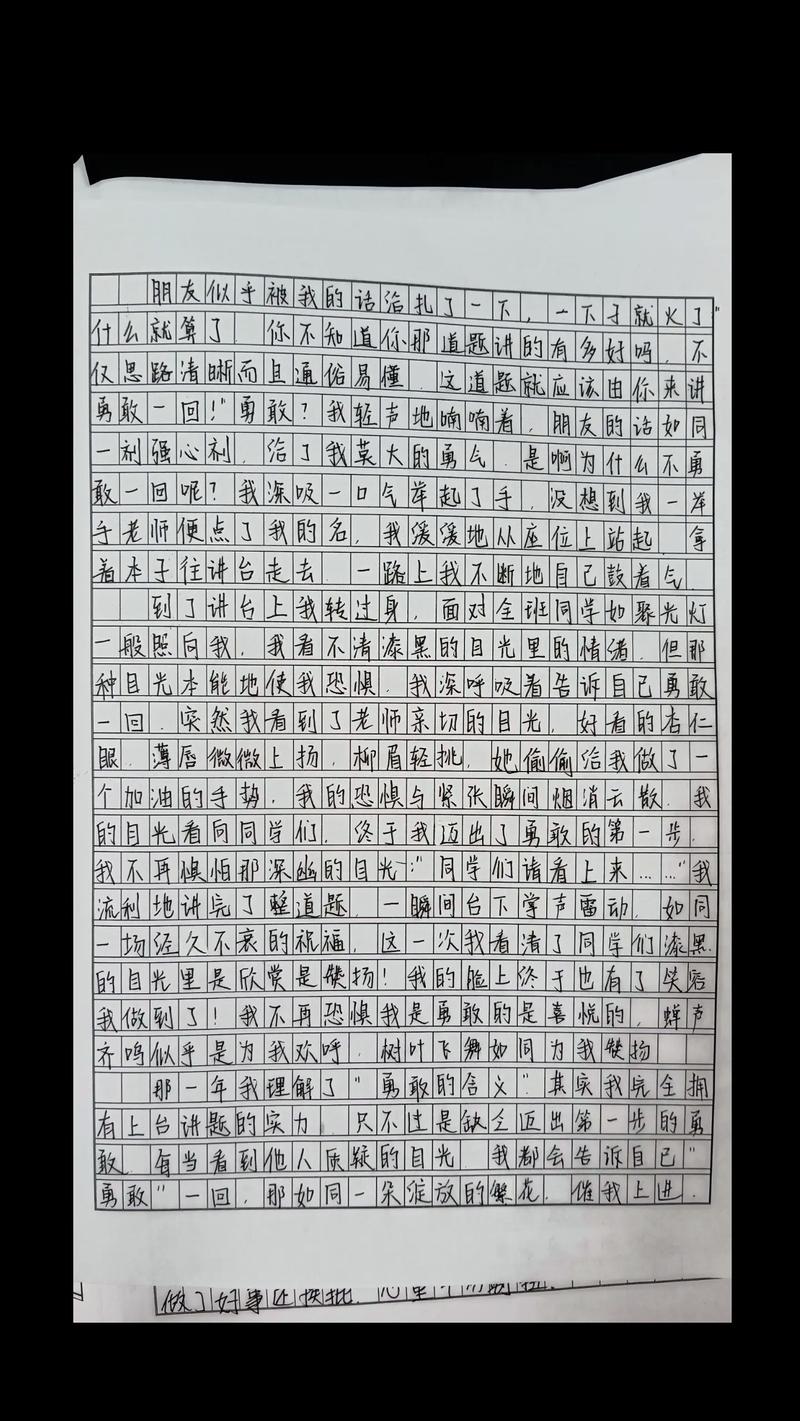 朋友似乎被我的话给扎了一下，一下子就火了"
什么就算了，你不知道你那道题讲的有多好吗，不
仅思路清晰而且通俗易懂，这道题就应该由你来讲
勇敢一回！"勇敢？我轻声地喃喃着，朋友的话如同
一剂强心剂，给了我莫大的勇气，是啊为什么不勇
敢一回呢？我深吸一口气举起了手，没想到我一举
手老师便点了我的名，我缓缓地从座位上站起，拿
着本子往讲台走去，一路上我不断地自己鼓着气，
到了讲台上我转过身，面对全班同学如聚光灯
一般照向我，我看不清漆黑的目光里的情绪，但那
种目光本能地使我恐惧，我深呼吸着告诉自己勇敢
一回，突然我看到了老师亲切的目光，好看的杏仁
眼，薄唇微微上扬，柳眉轻挑，她偷偷给我做了一
个加油的手势，我的恐惧与紧张瞬间烟消云散，我
的目光看向同学们，终于我迈出了勇敢的第一步，
我不再惧怕那深幽的目光："同学们请看上来……"我
流利地讲完了整道题，一瞬间台下掌声雷动，如同
一场经久不衰的祝福，这一次我看清了同学们漆黑
的目光里是欣赏是赞扬！我的脸上终于也有了笑容
我做到了！我不再恐惧我是勇敢的是喜悦的，蝉声
齐鸣似乎是为我欢呼，树叶飞舞如同为我赞扬
那一年我理解了"勇敢的含义"其实我完全拥
有上台讲题的实力，只不过是缺乏迈出第一步的勇
敢，每当看到他人质疑的目光，我都会告诉自己"
勇敢"一回，那如同一朵绽放的繁花，催我上进，
做了好事还挨批，心里